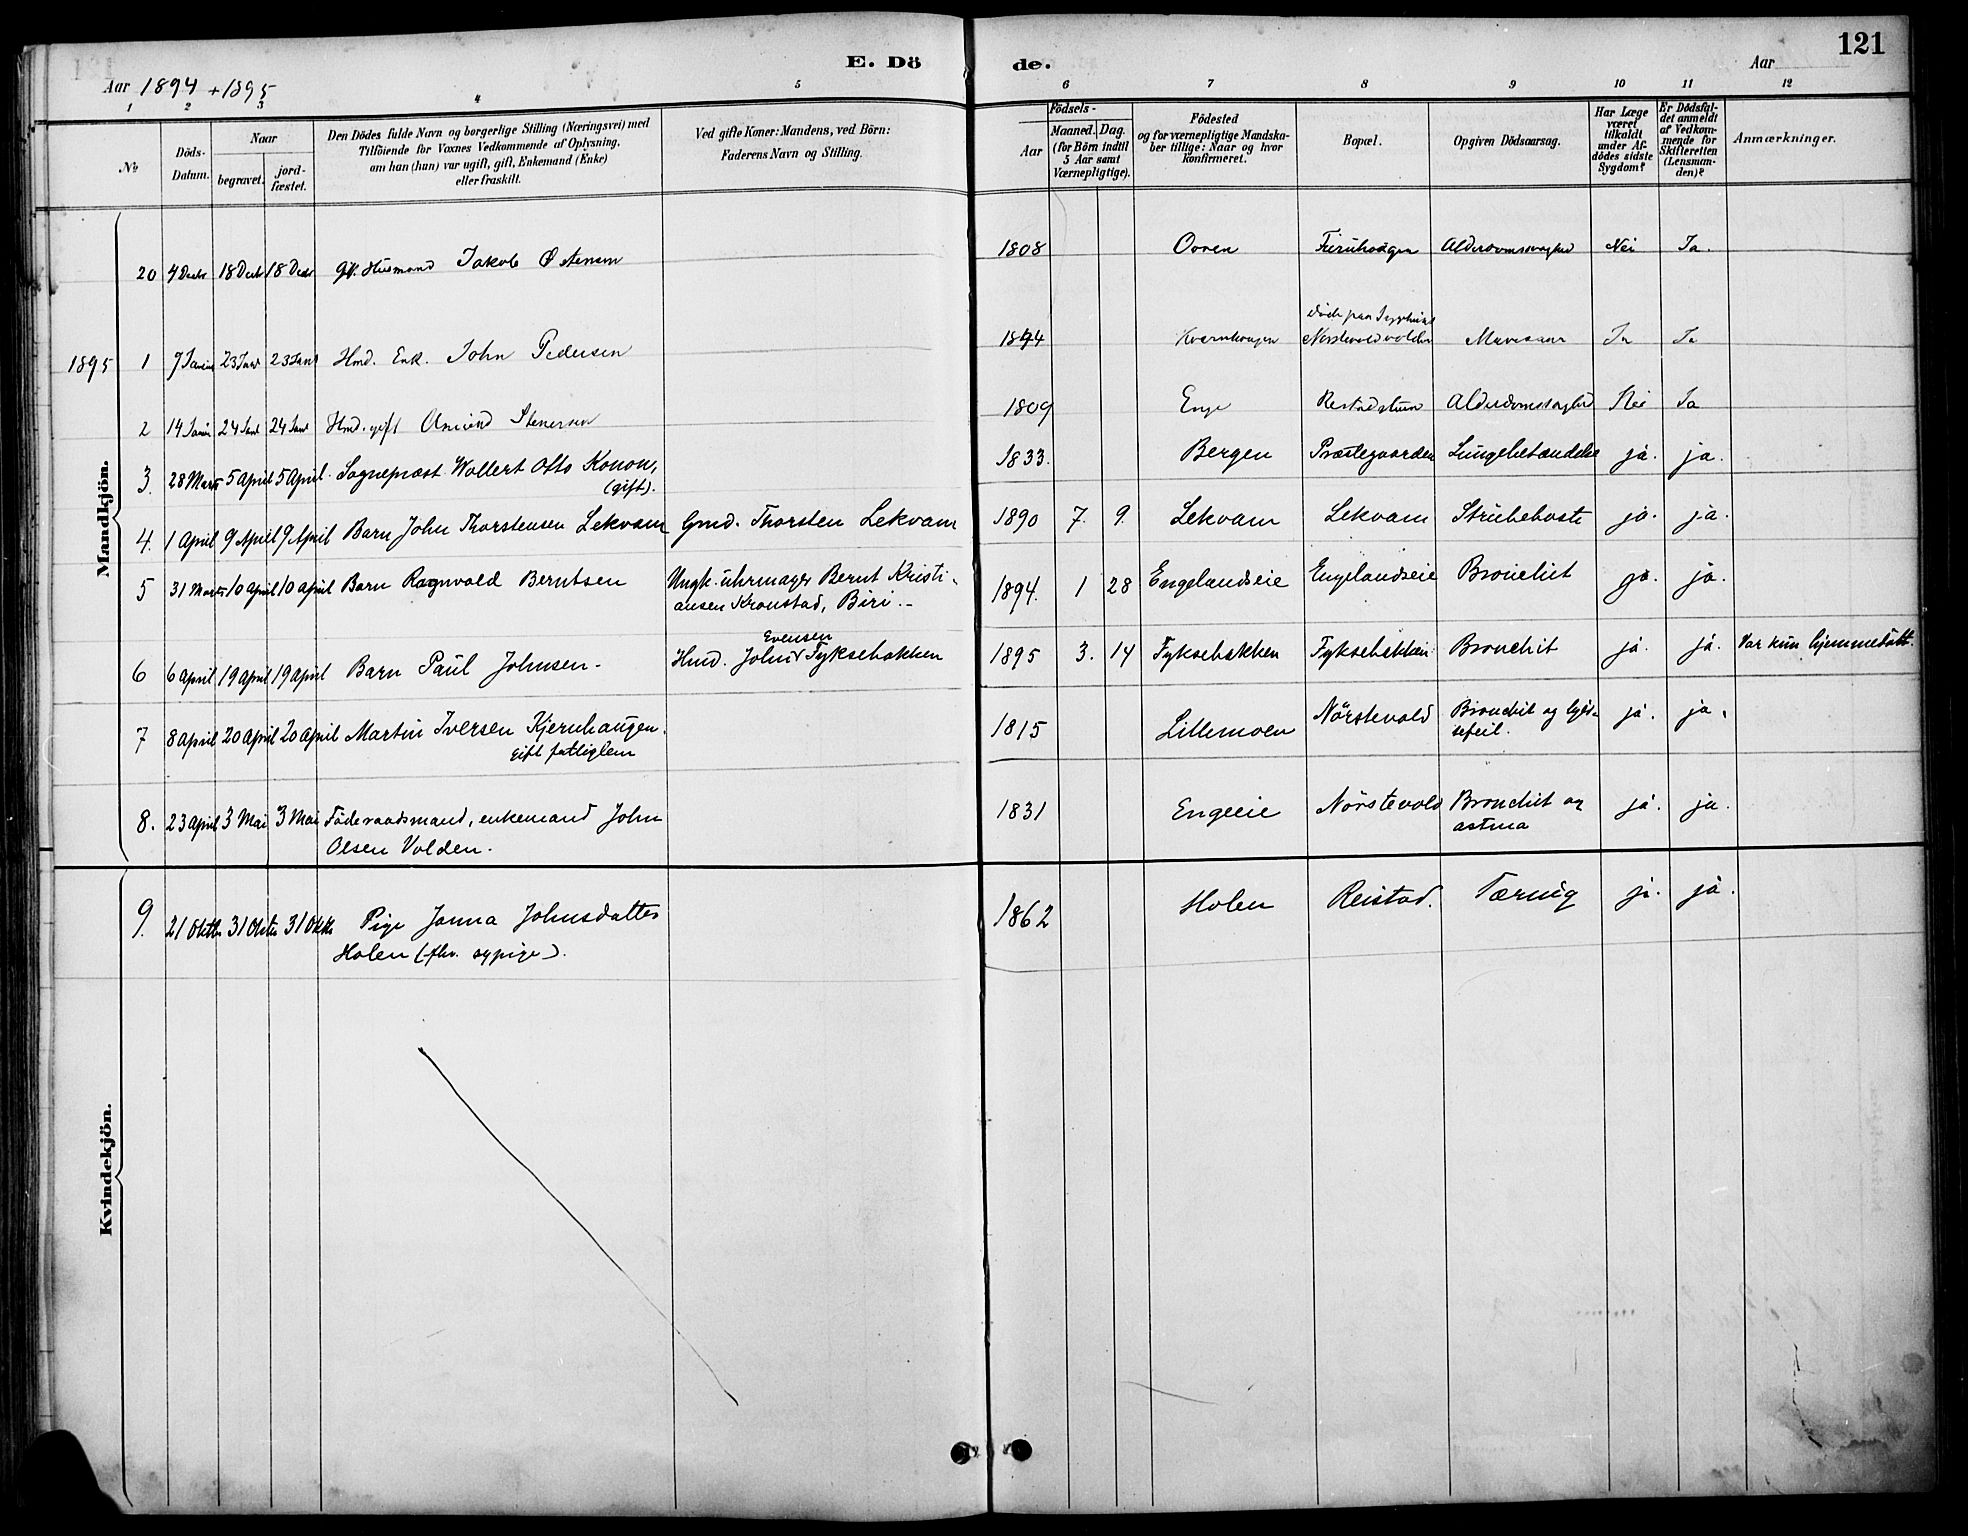 121
E. Dö de.
Aar 1894 + 1895
Aar
1 2 3 4 5 6 7 8 9 10 11 12
№
Döds-Datum.
Naar
begravet.
jord-fæstet.
Den Dödes fulde Navn og borgerlige Stilling (Næringsvei) med
Tilföiende for Voxnes Vedkommende af Oplysning,
om han (hun) var ugift, gift, Enkemand (Enke)
eller fraskilt.
Ved gifte Koner: Mandens, ved Börn:
Faderens Navn og Stilling.
Födsels-
Aar
Maaned. Dag.
(for Börn indtil
5 Aar samt
Værnepligtige).
Födested
og for værnepligtige Mandska-
ber tillige: Naar og hvor
konfirmeret.
Bopæl.
Opgiven Dödsaarsag.
Har Læge
været
tilkaldt
under Af-
dödes sidste
Sygdom?
Er Dödsfal-
det anmeldt
af Vedkom-
mende for
Skifteretten
(Lensman-
den)?
Anmærkninger.
Mandkjön.
20 4 Decbr 18 Decbr 18 Decbr Gift Husmand Jakob Østensen 1808 Ooren Alderdomssvaghed Nei Ja.
1895 1 9 Januar 23 Janr 23 Janr Hmd. Enk. John Pedersen Døde paa Sygehuset
Mavesaar Ja Ja
2 14 Januar 24 Janr 24 Janr Hmd. gift Amund Stenersen 1809 Enge Alderdomssvaghed Nei Ja
3. 28 Marts 5 April 5 April. Sogneprest Wollert Otto Konow, 1833. Bergen Præstegaarden Lungebetændelse ja. ja.
(gift).
4. 1 April 9 April 9 April Barn John Thorstensen Lekvam Gmd. Thorsten Lekvam 1890 7. 9. Lekvam Lekvam Strubehoste ja. ja.
5 31 Marts 10 April 10 April Barn Ragnvald Berntsen Ungk. uhrmager Bernt Kristi- 1894. 1 28 Engelandseie Engelandseie Bronchit ja. ja.
ansen Kronstad, Biri.-
Evensen
6 6 April 19 April 19 April Barn Paul Johnsen- Hmd. John Fyksebakken 1895 3. 14 Fyksebakken Fyksebakken Bronchit ja. ja. Var kun hjemmedöbt.
7 8 April 20 April 20 April Martin Iversen Kjernhaugen. 1815 Lillemoen Nörstevold Bronchit og hjer- ja. ja.
gift fattiglem tefeil.
8. 23 April 3 Mai 3 Mai Föderaadsmand, enkemand John 1831 Engeeie Nörstevold Bronchit og ja. ja.
Olsen Volden. astma
Kvindekjön.
9. 21 Oktbr 31 Oktbr 31 Oktbr Pige Janna Johnsdatter 1862 Holen Reistad. Tæring ja. ja.
Holen (fhv. sypige).